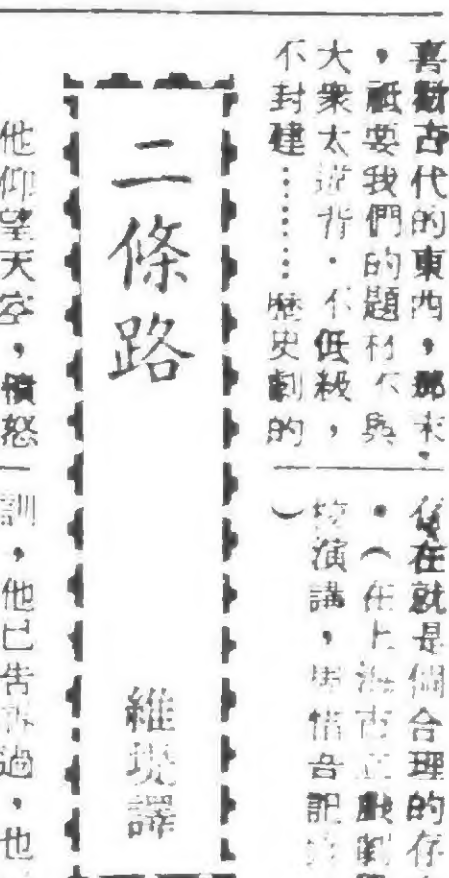 喜歡古代的東西，那末，
，祇要我們的題材不與
大衆太違背．不低級，
不封建………歷史劇的
在就是個合理的存
．（在上海市立戲劇
演講，惜音記
）
二條路
維 譯
他仰望天空，憤怒
訓，他已告訴過，也